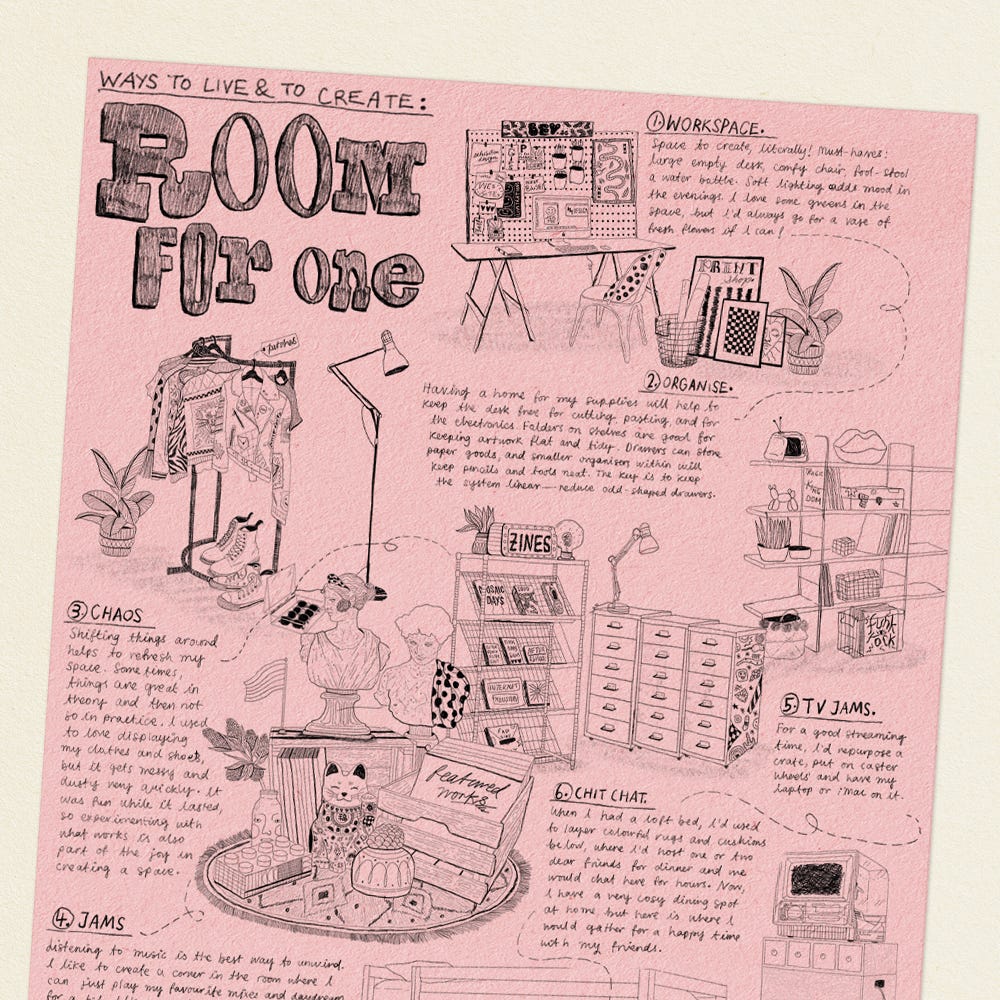 WAYS TO LIVE & TO CREATE:
ROOM
FOR one
1. WORKSPACE.
Space to create, literally! Must-haves:
large empty desk, comfy chair, foot-stool
a water bottle. Soft lighting adds mood in
the evenings. I love some greens in the
space, but I'd always go for a vase of
fresh flowers if I can!
BEV
PRINT
shop
patches
2. ORGANISE.
Having a home for my supplies will help to
keep the desk free for cutting, pasting, and for
the electronics. Folders on shelves are good for
keeping artwork flat and tidy. Drawers can store
paper goods, and smaller organisers within will
keep pencils and tools neat. The key is to keep
the system linear — reduce odd-shaped drawers.
ZINES
MOSAIC
DAYS
INTERNET
FUNK
ROCK
3. CHAOS
Shifting things around
helps to refresh my
space. Sometimes,
things are great in
theory and then not
so in practice. I used
to love displaying
my clothes and shoes,
but it gets messy and
dusty very quickly. It
was fun while it lasted,
so experimenting with
what works is also
part of the joy in
creating a space.
featured
works
5. TV JAMS.
For a good streaming
time, I'd repurpose a
crate, put on caster
wheels and have my
laptop or iMac on it.
6. CHIT CHAT.
When I had a loft bed, I'd used
to layer colourful rugs and cushions
below, where I'd host one or two
dear friends for dinner and we
would chat here for hours. Now,
I have a very cosy dining spot
at home, but here is where I
would gather for a happy time
with my friends.
4. JAMS
Listening to music is the best way to unwind.
I like to create a corner in the room where I
can just play my favourite mixes and daydream
for a bit